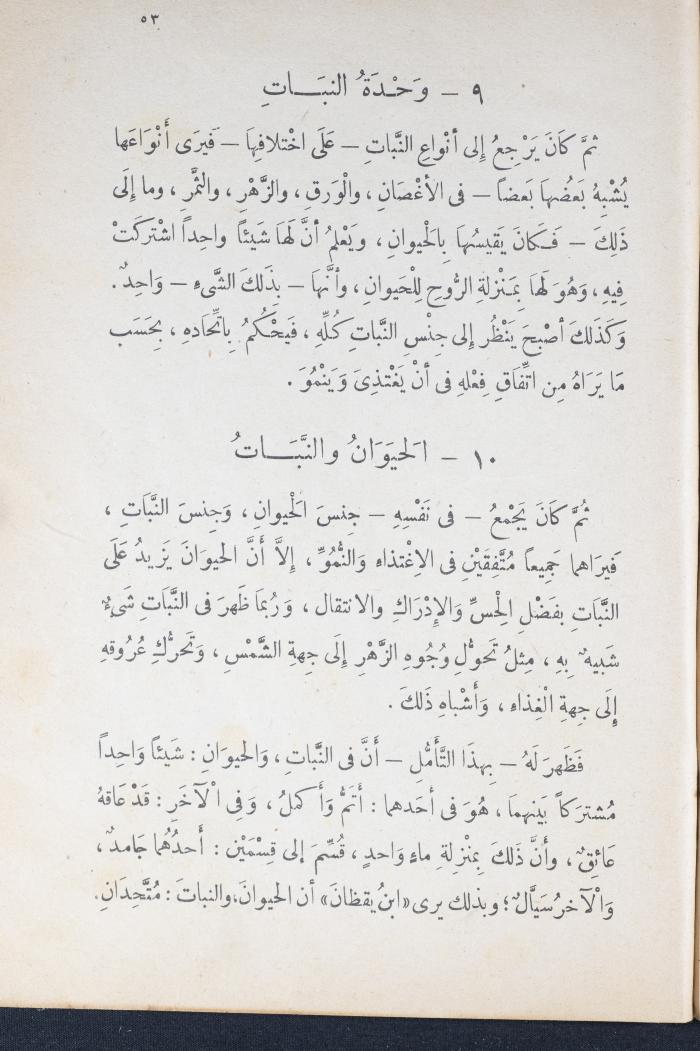 ٥٣
٩ – وَحْدَةُ النبَـاتِ
ثمَّ كَانَ يَرْجِعُ إِلى أَنْوَاعِ النَّبَاتِ – عَلَى اخْتلافِهَا – فَيرَى أَنْوَاعَها
يُشْبِهُ بَعضُهَا بَعضاً – فى الأغْصَانِ ، والْوَرقِ ، والزَّهْرِ ، والثمَّرِ ، وما إلَى
ذَلِكَ – فَـكَانَ يَقيسُهَا بِالَحْيوانِ ، ويَعْلمُ أنَّ لَهَا شَيئاً واحِداً اشْتركَتْ
فِيهِ ، وَهُوَ لَهَا بِمَنْزلةِ الرُّوحِ لِلْحَيوانِ ، وأنَّهَا – بذَلكَ الشَّىءِ – وَاحِدٌ .
وَكَذَلكَ أصْبحَ يَنْظُر إلى جِنْسِ النَّباتِ كُلِّهِ ، فَيحْكُمُ بِاتِّحَادِه ، بحَسَب
مَا يَرَاهُ مِن اتِّفَاقِ فِعْلهِ فى أنْ يَغْتذِىَ وَيَنْمُوَ .
١٠ – الَحيَوَانُ والنَّبَـاتُ
ثُمَّ كَانَ يَجْمعُ – فى نَفْسِهِ – جِنسَ الَحْيوانِ ، وَجِنسَ النَّبَاتِ ،
فَيرَاهما جَمِيعاً مُتَّفِقَيْنِ فى الاِغْتذاءِ وَالنُّمُوِّ ، إِلاَّ أَنَّ الحيوَانَ يَزيدُ عَلَى
النَّبَاتِ بفَضْلِ الْحِسِّ وَالإِدْرَاكِ والانتقال ، وَرُبمَا ظَهرَ فى النَّبَاتِ شَىْءٌ
شَبيهٌ بِهِ ، مِثلُ تَحوُّلِ وُجُوهِ الزَّهْرِ إلَى جِهةِ الشَّمْسِ ، وَتَحرُّكِ عُرُوقهِ
إلَى جِهةِ الْغِذاءِ ، وَأَشْباهِ ذَلكَ .
فَظَهرَ لَهُ – بِهذَا التَّأَمُّلِ – أَنَّ فى النَّباتِ ، وَالحيوَانِ : شَيئاً وَاحِداً
مُشترَكاً بَينهمَا ، هُوَ فى أحَدهما : أتَمُّ وَأكملُ ، وَفِى الْآخَرِ : قَدْ عَاقهُ
عَائِقٌ ، وأنَّ ذَلكَ بِمنْزِلةِ ماءٍ وَاحدٍ ، قُسِّمَ إلى قِسْمَيْنِ : أَحدُهُما جَامدٌ ،
وَالْآخرُ سَيَّالٌ ؛ وبذلك يرى «ابنُ يقظانَ» أن الحيوانَ،والنباتَ : مُتَّحِدَانِ.